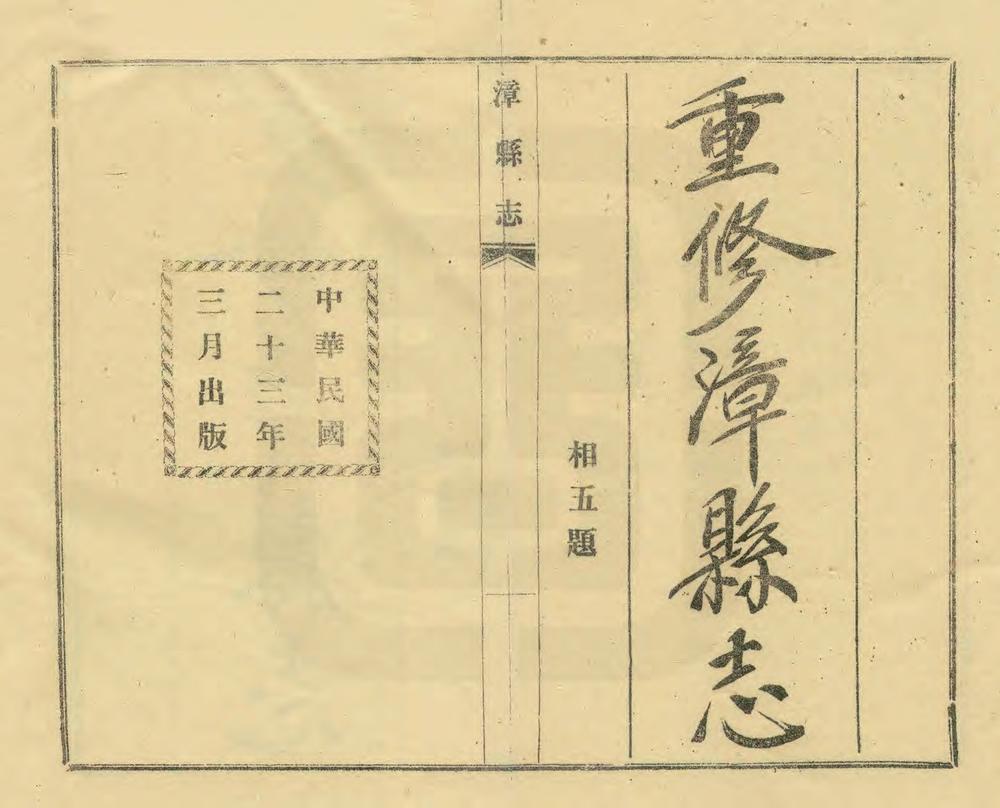 重修漳縣志
相五題
漳縣志
中華民國
二十三年
三月出版